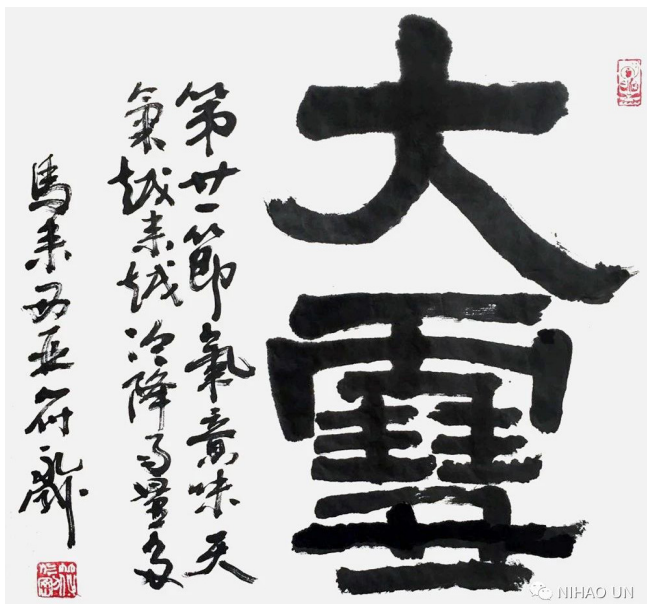 大雪
第廿一節氣意味天
氣越来越冷降雨量多
馬来西亚符永刚
NIHAO UN